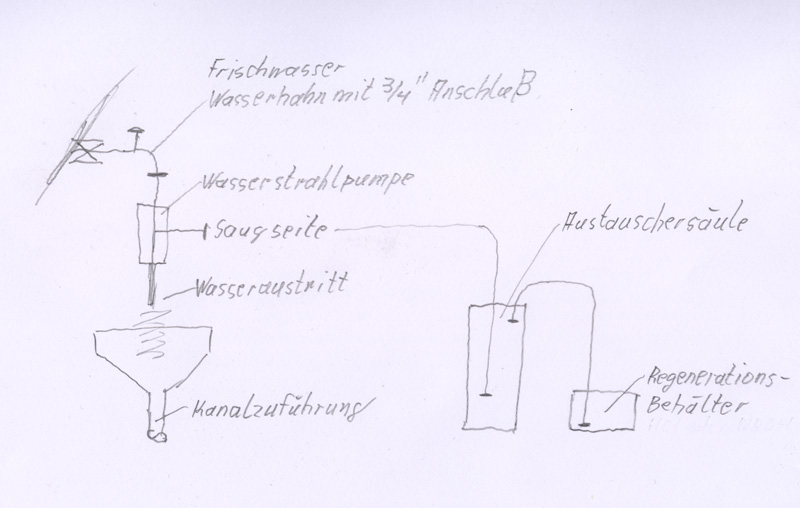 Frischwasser
Wasserhahn mit 3/4" Anschluß
Wasserstrahlpumpe
Saugseite
Austauschersäule
Wasseraustritt
Regenerations-
Behälter
Kanalzuführung